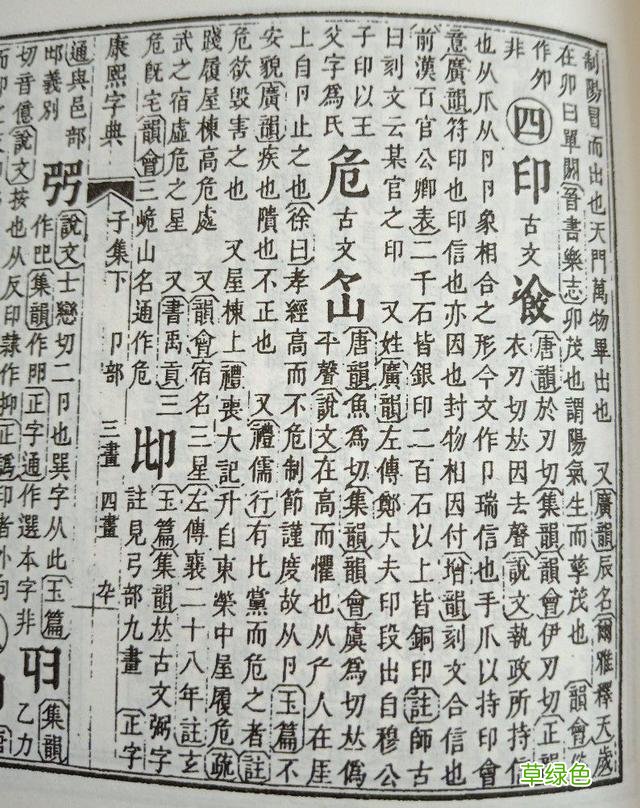 制陽冒而出也天門萬物畢出也 又廣韻辰名爾雅釋天歲
在卯曰單閼晉書樂志卯茂也謂陽氣生而孳茂也 韻會
作夘
非
四
印 古文
唐韻於刃切集韻韻會伊刃切正韻
衣刃切𠀤因去聲說文執政所持信
也从爪从卪卪象相合之形今文作卩瑞信也手爪以持印會
意廣韻符印也印信也亦因也封物相因付增韻刻文合信也
前漢百官公卿表二千石皆銀印二百石以上皆銅印註師古
曰刻文云某官之印 又姓廣韻左傳鄭大夫印段出自穆公
子印以王
父字爲氏
危 古文
唐韻魚爲切集韻韻會虞爲切𠀤僞
平聲說文在高而懼也从厃人在厓
上自卪止之也徐曰孝經高而不危制節謹度故从卪玉篇不
安貌廣韻疾也隤也不正也 又禮儒行有比黨而危之者註
危欲毀害之也 又屋棟上禮喪大記升自東榮中屋履危疏
踐履屋棟高危處 又韻會宿名三星左傳襄二十八年註玄
武之宿虛危之星 又書禹貢三
危旣宅韻會三峗山名通作危
玉篇集韻𠀤古文弼字
註見弓部九畫 正字
康熙字典 子集下 卩部 三畫 四畫
通與邑部
義別
說文士戀切二卪也巽字从此玉篇
集韻作正字通作選本字非
集韻
乙力
切音億說文按也从反印隸作抑正譌印者外向
草绿色